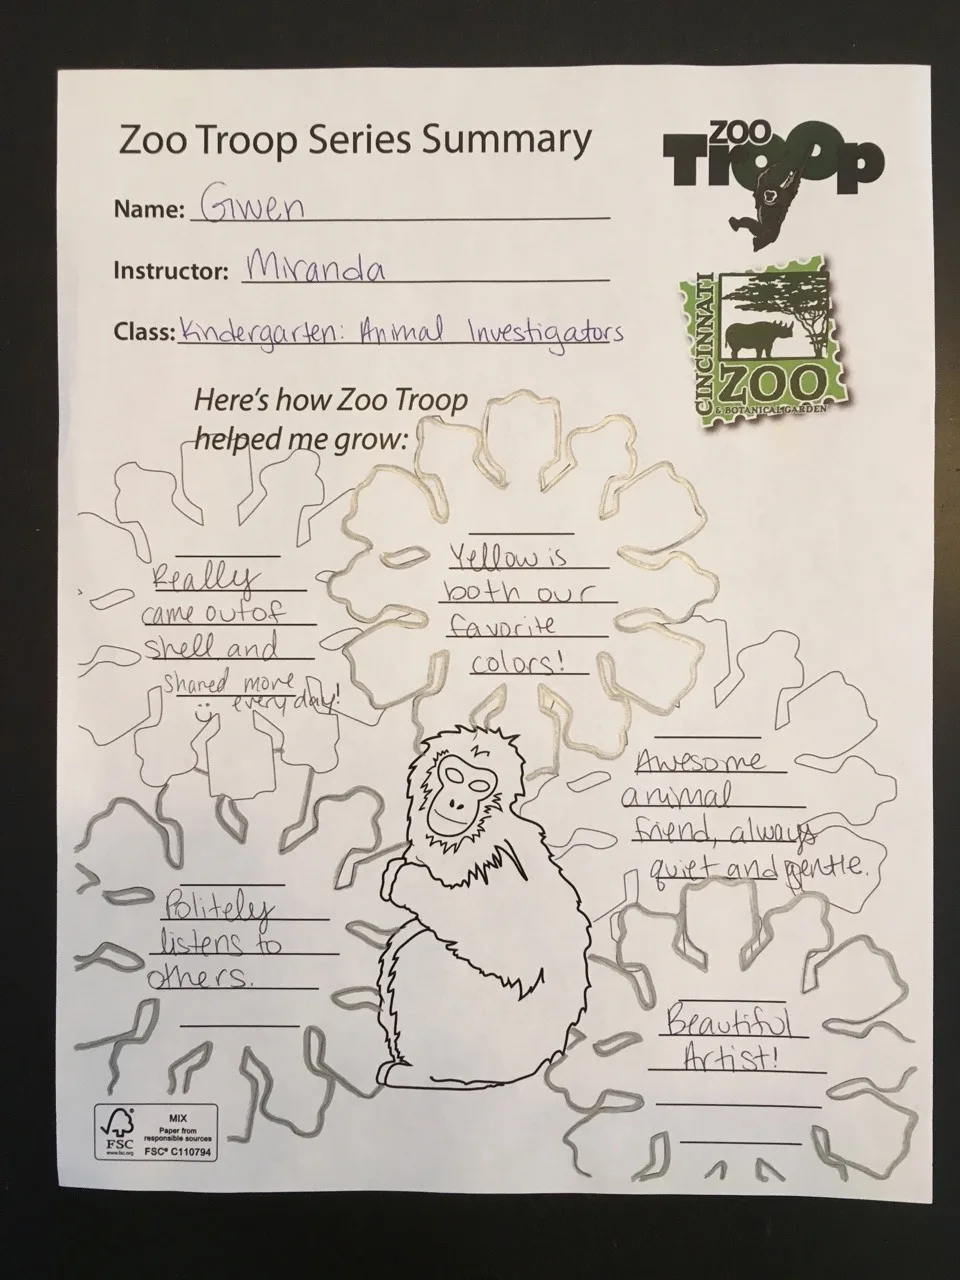 Zoo Troop Series Summary
ZOO
Troop
Name: Gwen
Instructor: Miranda
Class: Kindergarten: Animal Investigators
CINCINNATI
ZOO
& BOTANICAL GARDEN
Here's how Zoo Troop
helped me grow:
Really
came out of
shell and
shared more
every day!
Yellow is
both our
favorite
colors!
Awesome
animal
friend, always
quiet and gentle.
Politely
listens to
others.
Beautiful
Artist!
FSC
www.fsc.org
MIX
Paper from
responsible sources
FSC® C110794